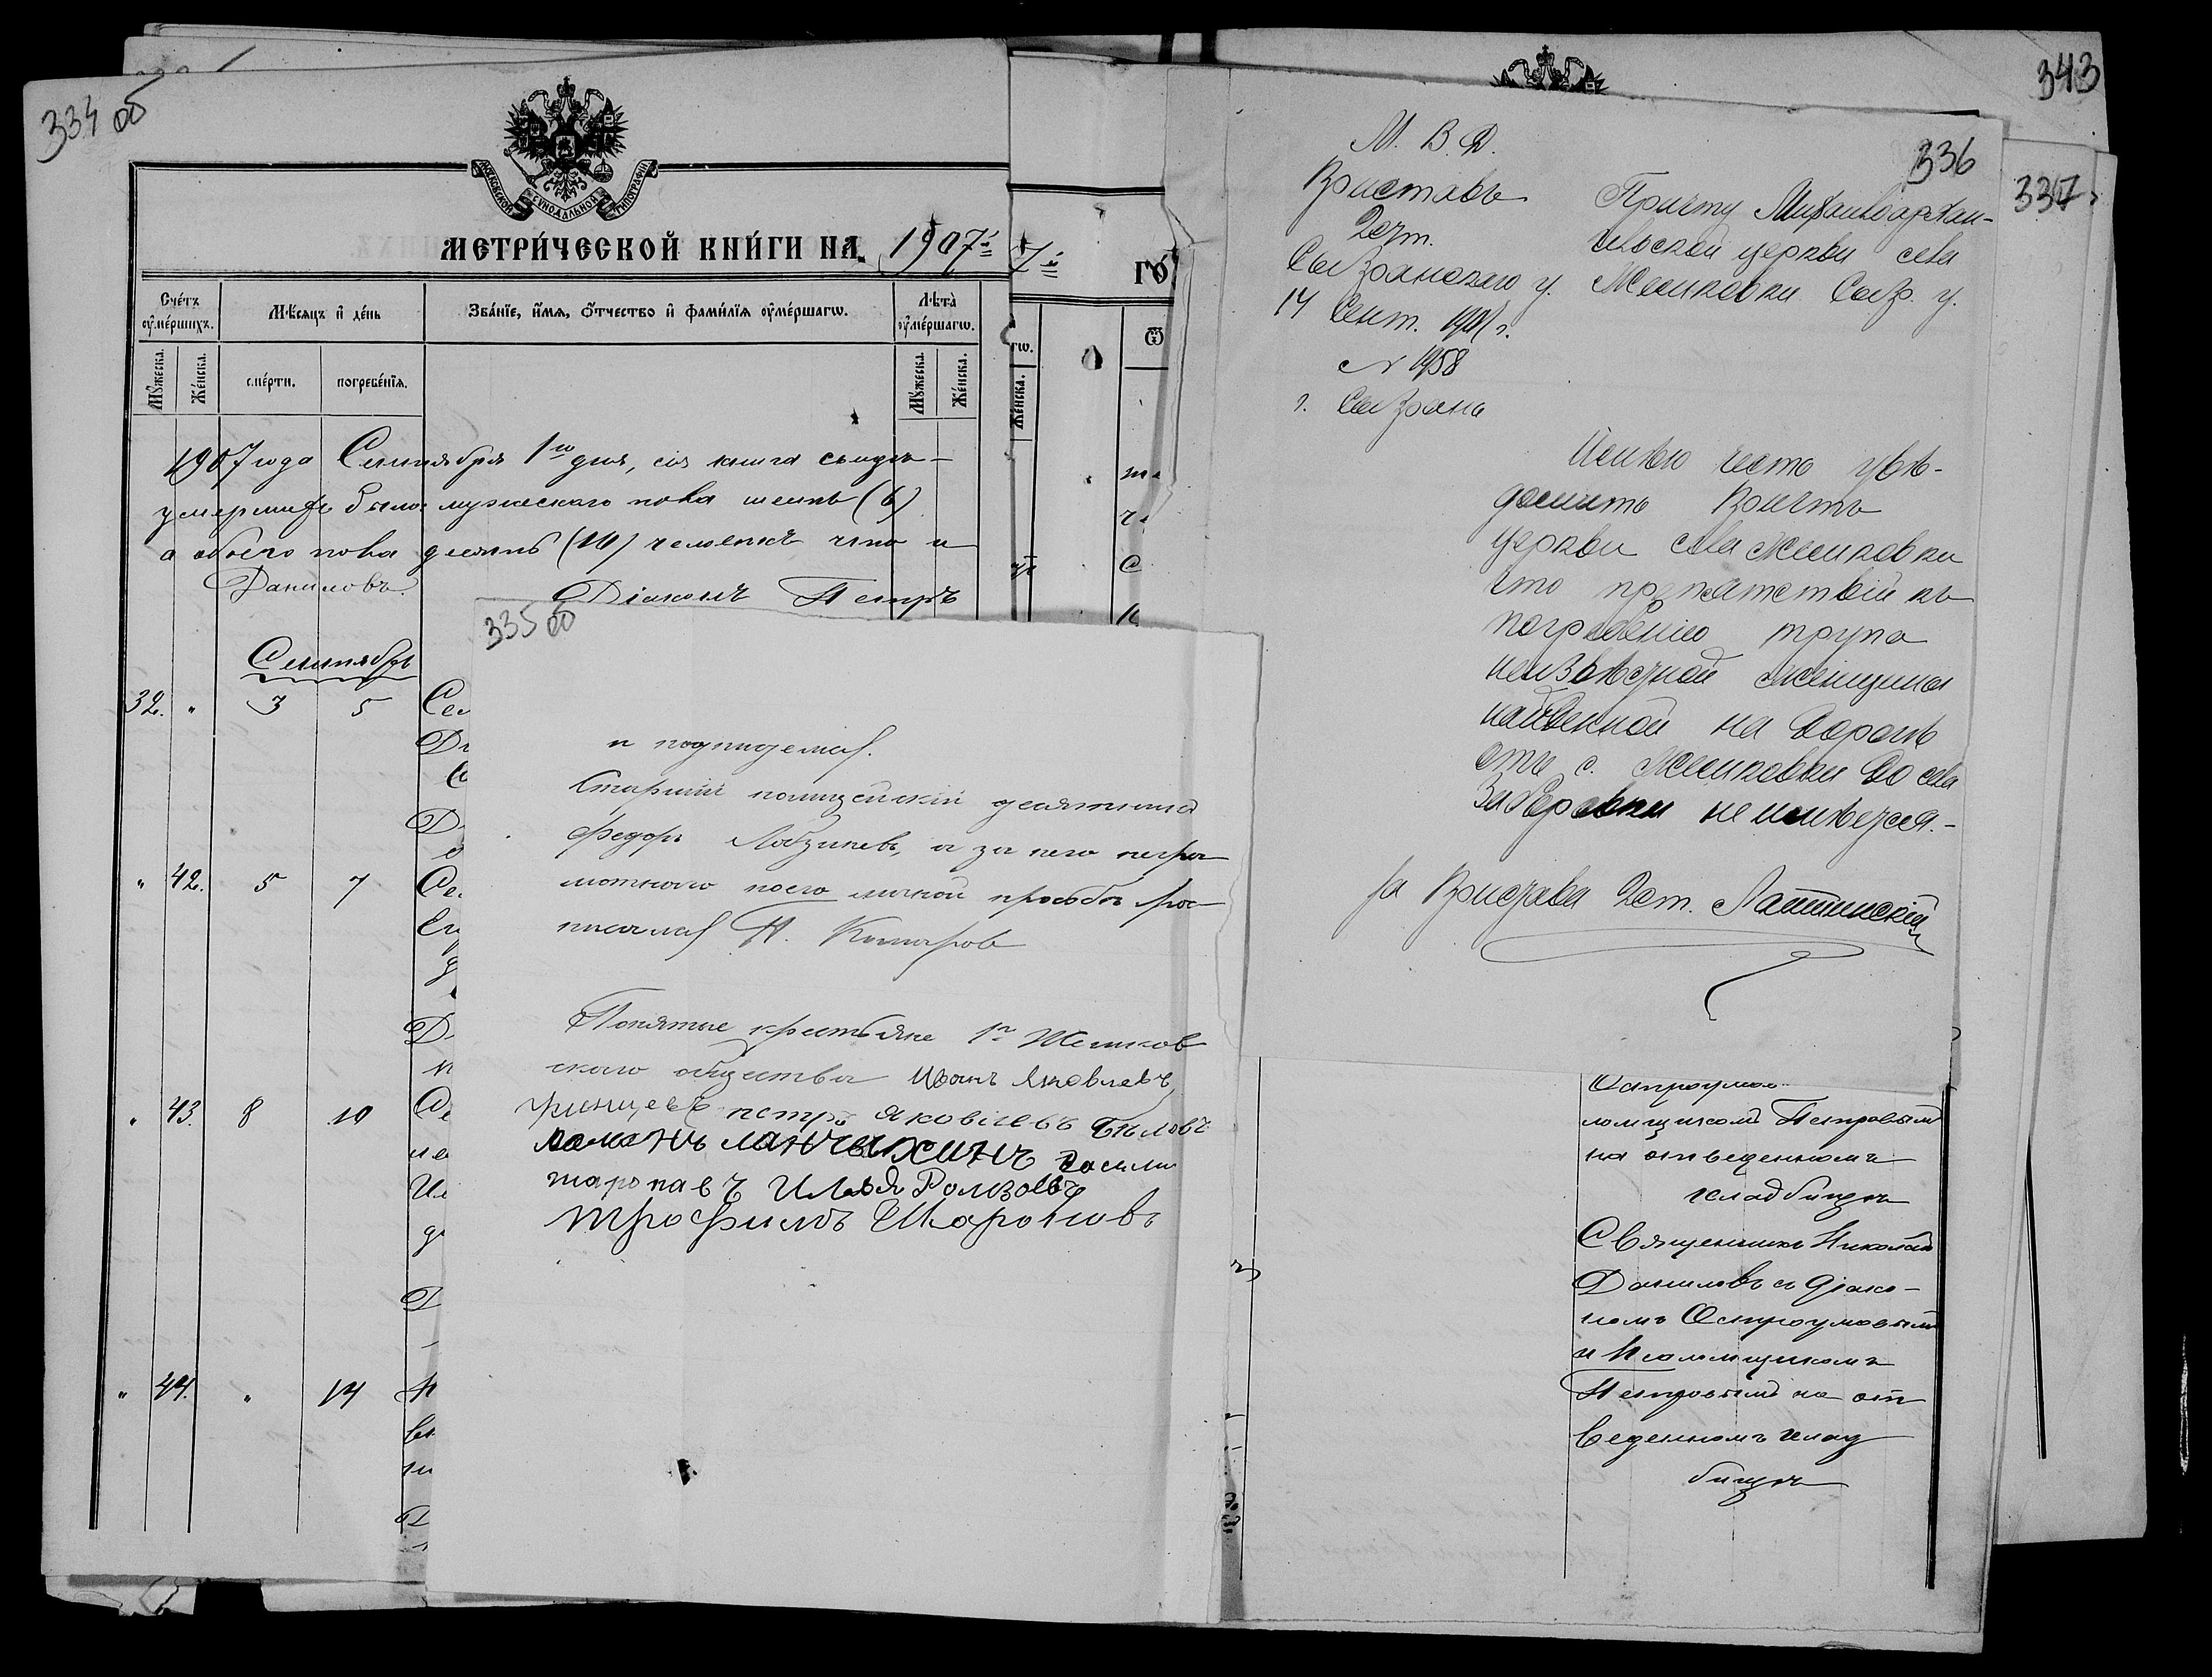 334 об
МОСКОВСКОЙ СѴНОДАЛЬНОЙ ТИПОГРАФІИ
МЕТРИ́ЧЕСКОЙ КНИ́ГИ НА 1907й
Сче́тъ ᲂу҆ме́ршихъ.
Мѣ́сяцъ и҆ де́нь
Зва́нїе, и҆́мя, ѻ҆́тчество и҆ фами́лїя ᲂу҆ме́ршагѡ.
Лѣта̀ ᲂу҆ме́ршагѡ.
Мꙋ́жеска.
Же́нска.
сме́рти.
погребе́нїя.
Мꙋ́жеска.
Же́нска.
1907 года Сентября 1го дня, сія книга свидѣ-
умершихъ было: мужескаго пола шесть (6)
а обоего пола десять (10) человѣкъ что и
Даниловъ. Діаконъ Петръ
Сентябрь
32. " 3 5
" 42. 5 7
" 43. 8 10
" 44. " 14
7й
ГО́
гѡ.
Же́нска.
335 об
и подпидемся.
Старшій полицейскій десятникъ
Федоръ Лобзиневъ, а за него негра-
мотнаго по его личной просьбѣ рос-
писался Н. Комаров
Понятые крестьяне 1го Жемков
скаго общества Иванъ Яковлевъ,
петръ Яковлевъ Быловъ
васили
Илья
трофимъ Шароновъ
343
337
336
М. В. Д.
Приставъ
2 ст.
Сызранскаго у.
14 Сент. 1907 г.
N 1958
г. Сызрань
Причту Михаилоархан-
гельской церкви села
Жемковки Сызр. у.
Имѣю честь увѣ-
домить Причтъ
церкви села Жемковки
что препятствій къ
погребенію трупа
неизвѣстной женщины
найденной на дорогѣ
отъ с. Жемковки до села
Заборовки не имѣется.-
За Пристава 2 ст. Лаптинскій
ломщикомъ Петровымъ
на отведенномъ
кладбищѣ
Священникъ Николай
Даниловъ съ діако-
номъ Остроумовымъ
и Псаломщикомъ
Петровымъ на от
веденномъ клад
бищѣ